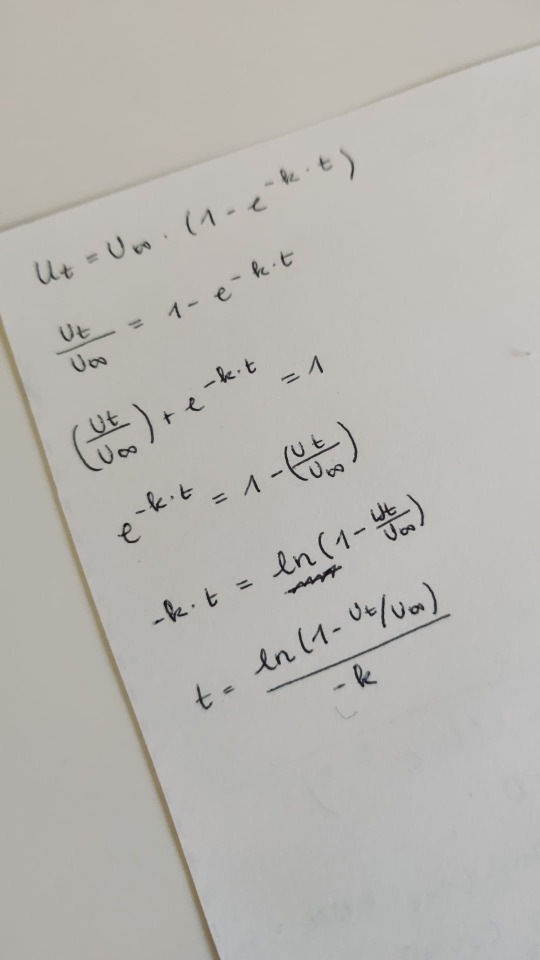 Ut = U∞ · (1 - e^-k·t)
Ut/U∞ = 1 - e^-k·t
(Ut/U∞) + e^-k·t = 1
e^-k·t = 1 - (Ut/U∞)
-k·t = ln(1 - Ut/U∞)
t = ln(1 - Ut/U∞)/-k